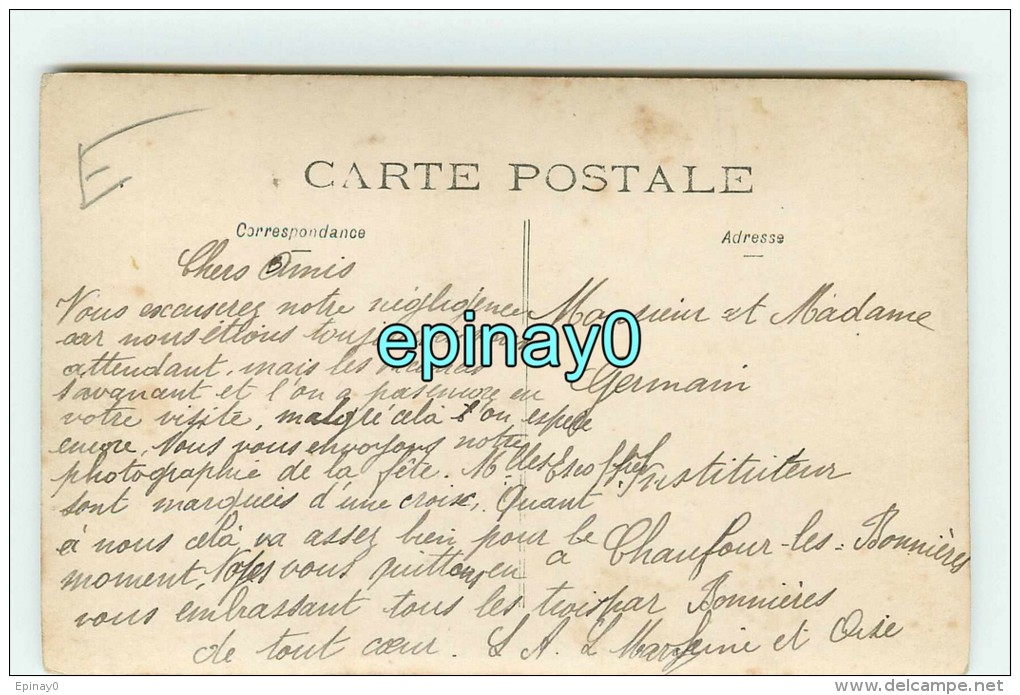 E
CARTE POSTALE
Correspondance
Chers Amis
Vous excuserez notre négligence
car nous étions
attendant, mais les
s'avançant et l'on a pas encore eu
votre visite, malgré celà l'on espère
encore, Nous vous envoyons notre
photographie de la fête. M.
sont marqués d'une croix. Quant
à nous celà va assez bien pour le
moment, vous quittons en
vous embrassant tous les trois
de tout cœur. L A. L
Adresse
Monsieur et Madame
Germain
Instituteur
à Chaufour-les-Bonnières
par Bonnières
Seine et Oise
epinay0
Epinay0
www.delcampe.net